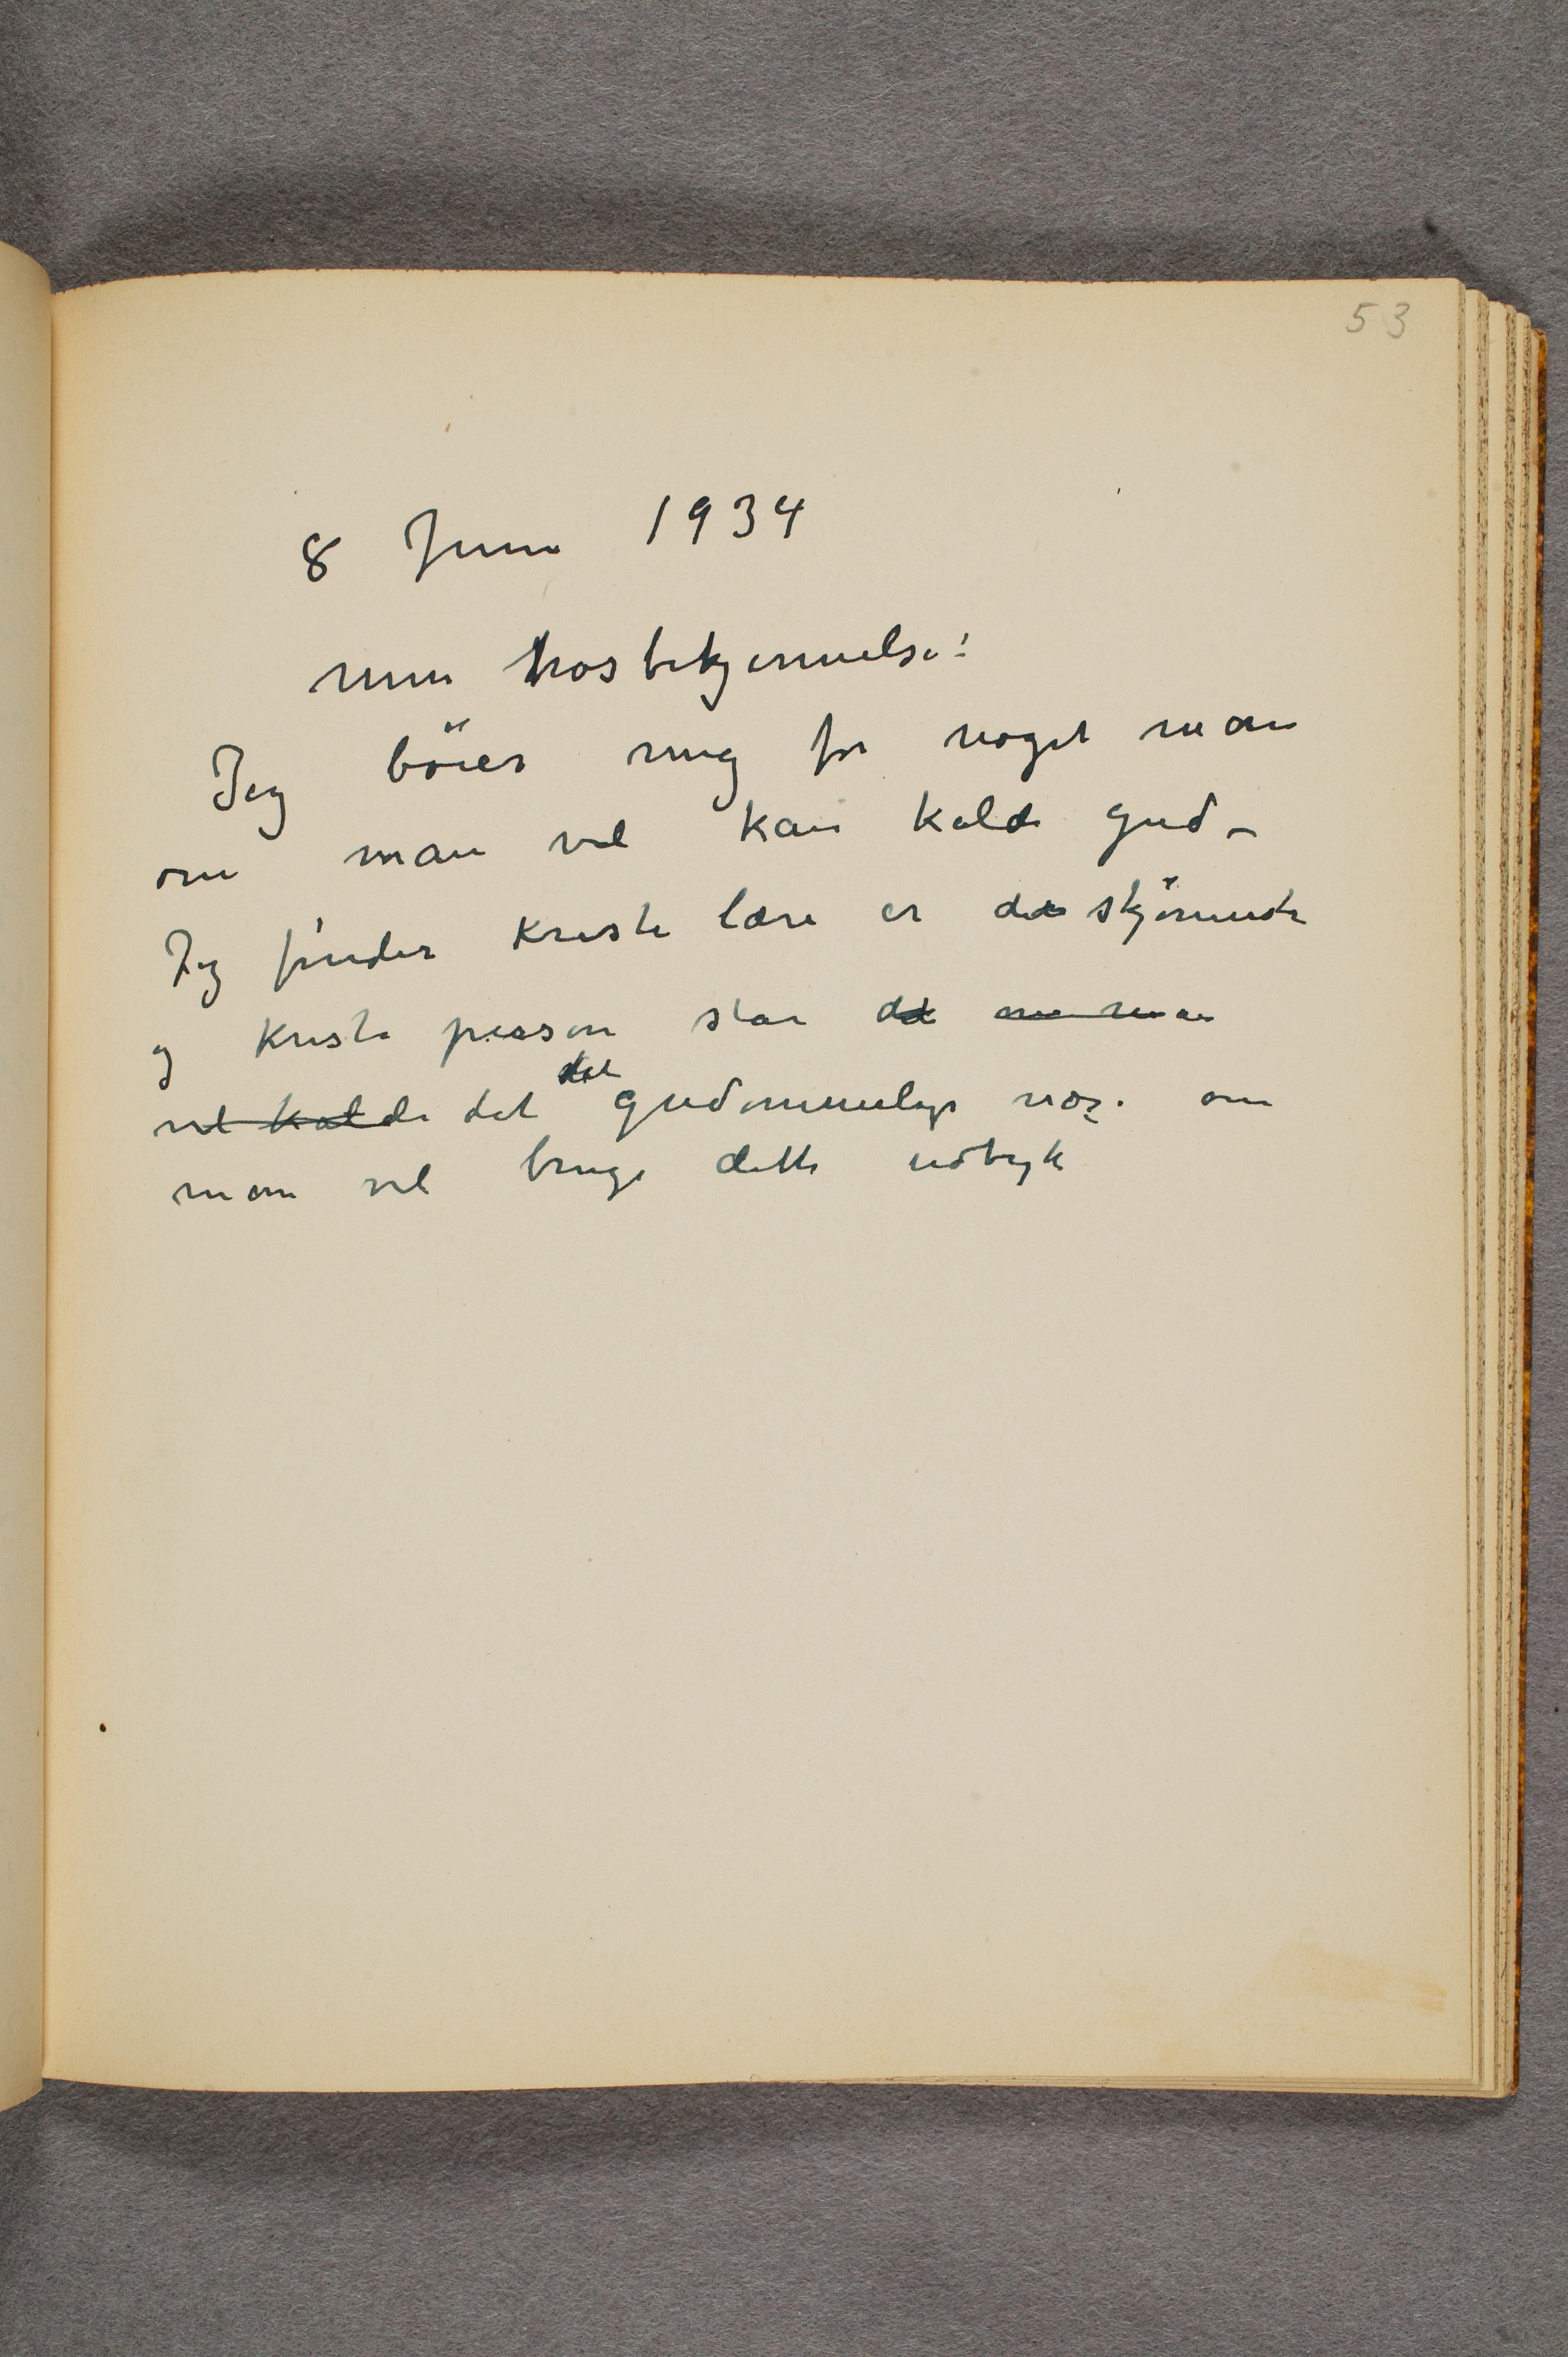 53
8 Juni 1934
min trosbekjennelse:
Jeg böier mig for noget man
om man vil kan kalde gud –
Jeg finder Kristi lære er det skjönneste
og Kristi person står det om man
vil kalde det det gudommelige nær om
man vil bruge dette udtryk